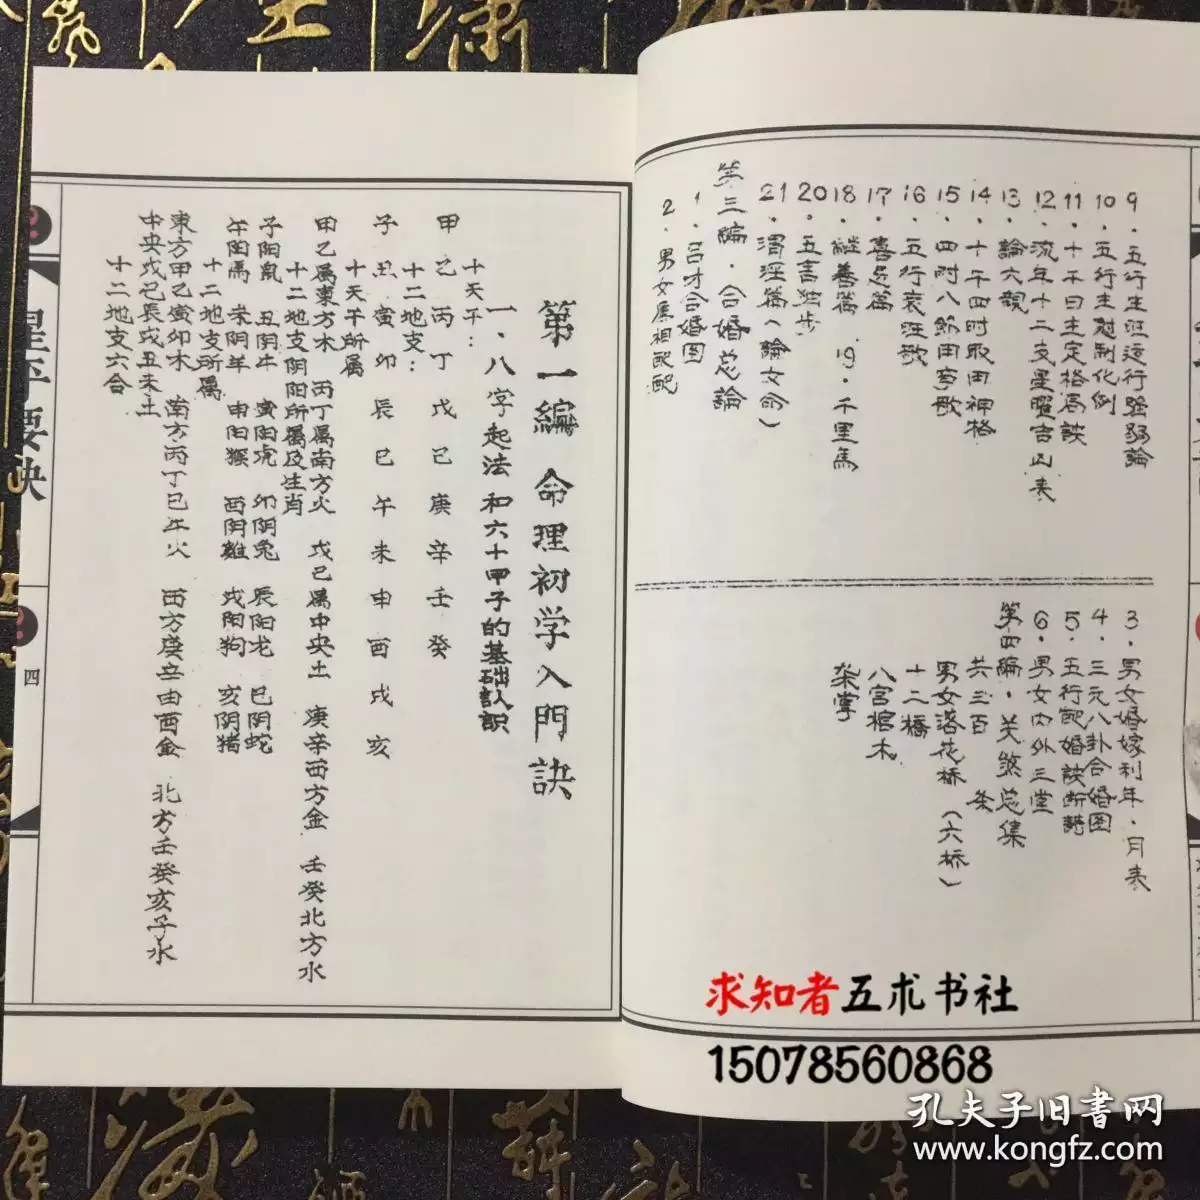 9．五行生旺运行强弱論
10．五行生尅制化例
11．十干日主定格局訣
12．流年十二支星曜吉凶表
13．論六親
14．十干四时取用神格
15．四时八節用事歌
16．五行衰旺歌
17．喜忌篇
18．継善篇　19．千里馬
20．五言独步
21．渭泾篇（論女命）
第三編．合婚总論
1．吕才合婚图
2．男女属相配配
3．男女婚嫁利年．月表
4．三元八卦合婚图
5．五行配婚訣断詩
6．男女内外三堂
第四編．关煞总集
共三百　条
男女落花桥（六桥）
十二橋
八宫棺木
架掌
第一編　命理初学入門訣
一．八字起法和六十甲子的基础认识
十天干：
甲乙丙丁戊己庚辛壬癸
十二地支：
子丑寅卯辰巳午未申酉戌亥
十天干所属
甲乙属東方木　丙丁属南方火　戊己属中央土　庚辛西方金　壬癸北方水
十二地支阴阳所属及生肖
子阳鼠　丑阴牛　寅阳虎　卯阴兔　辰阳龙　巳阴蛇
午阳馬　未阴羊　申阳猴　酉阴雞　戌阳狗　亥阴猪
十二地支所属
東方甲乙寅卯木　南方丙丁巳午火　西方庚辛申酉金　北方壬癸亥子水
中央戊己辰戌丑未土
十二地支六合
星平要訣
四
求知者五术书社
15078560868
孔夫子旧書网
www.kongfz.com